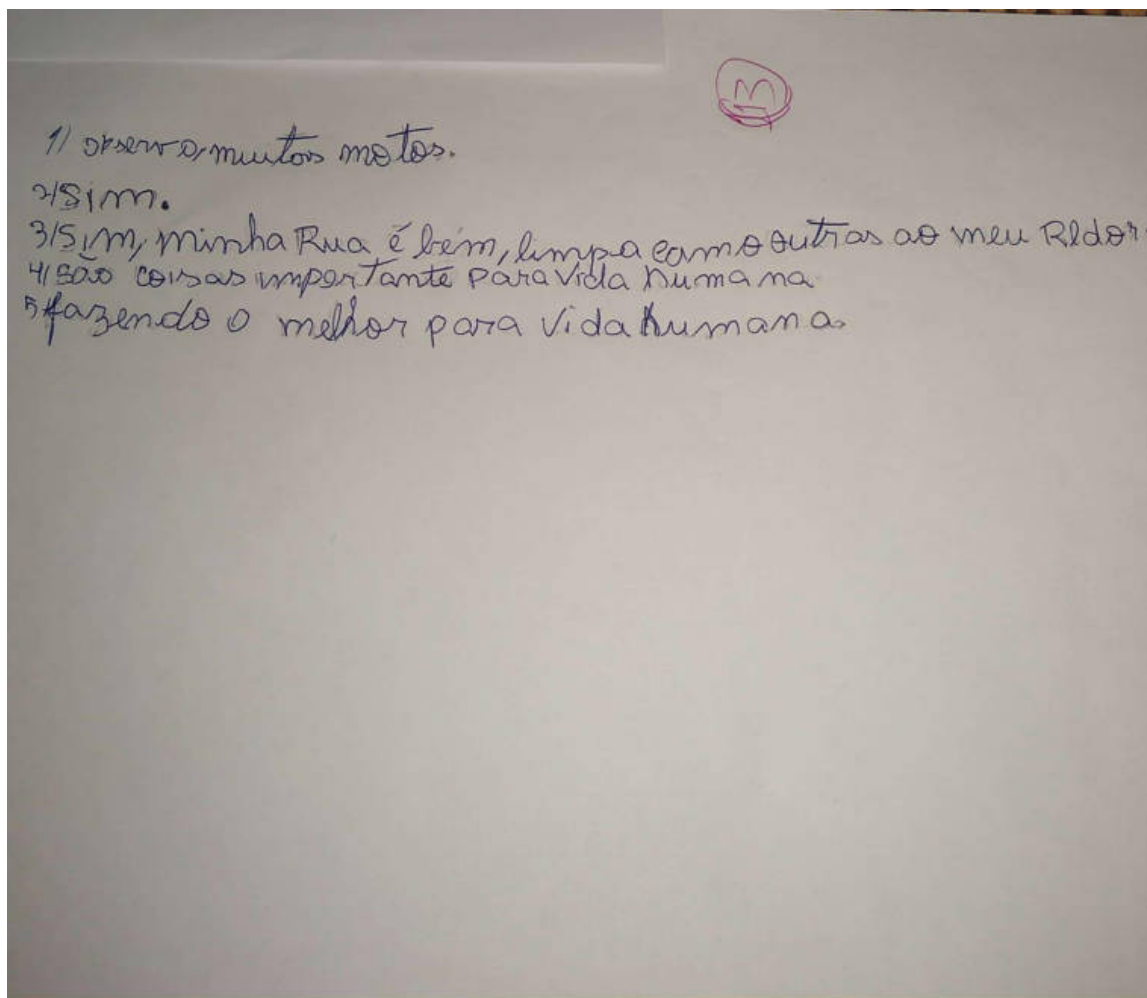 13
1) observo, muitos motos.
2) Sim.
3) Sim, minha Rua é bem, limpa como outras ao meu Redor
4) são coisas importante para vida humana
5 fazendo o melhor para vida humana.